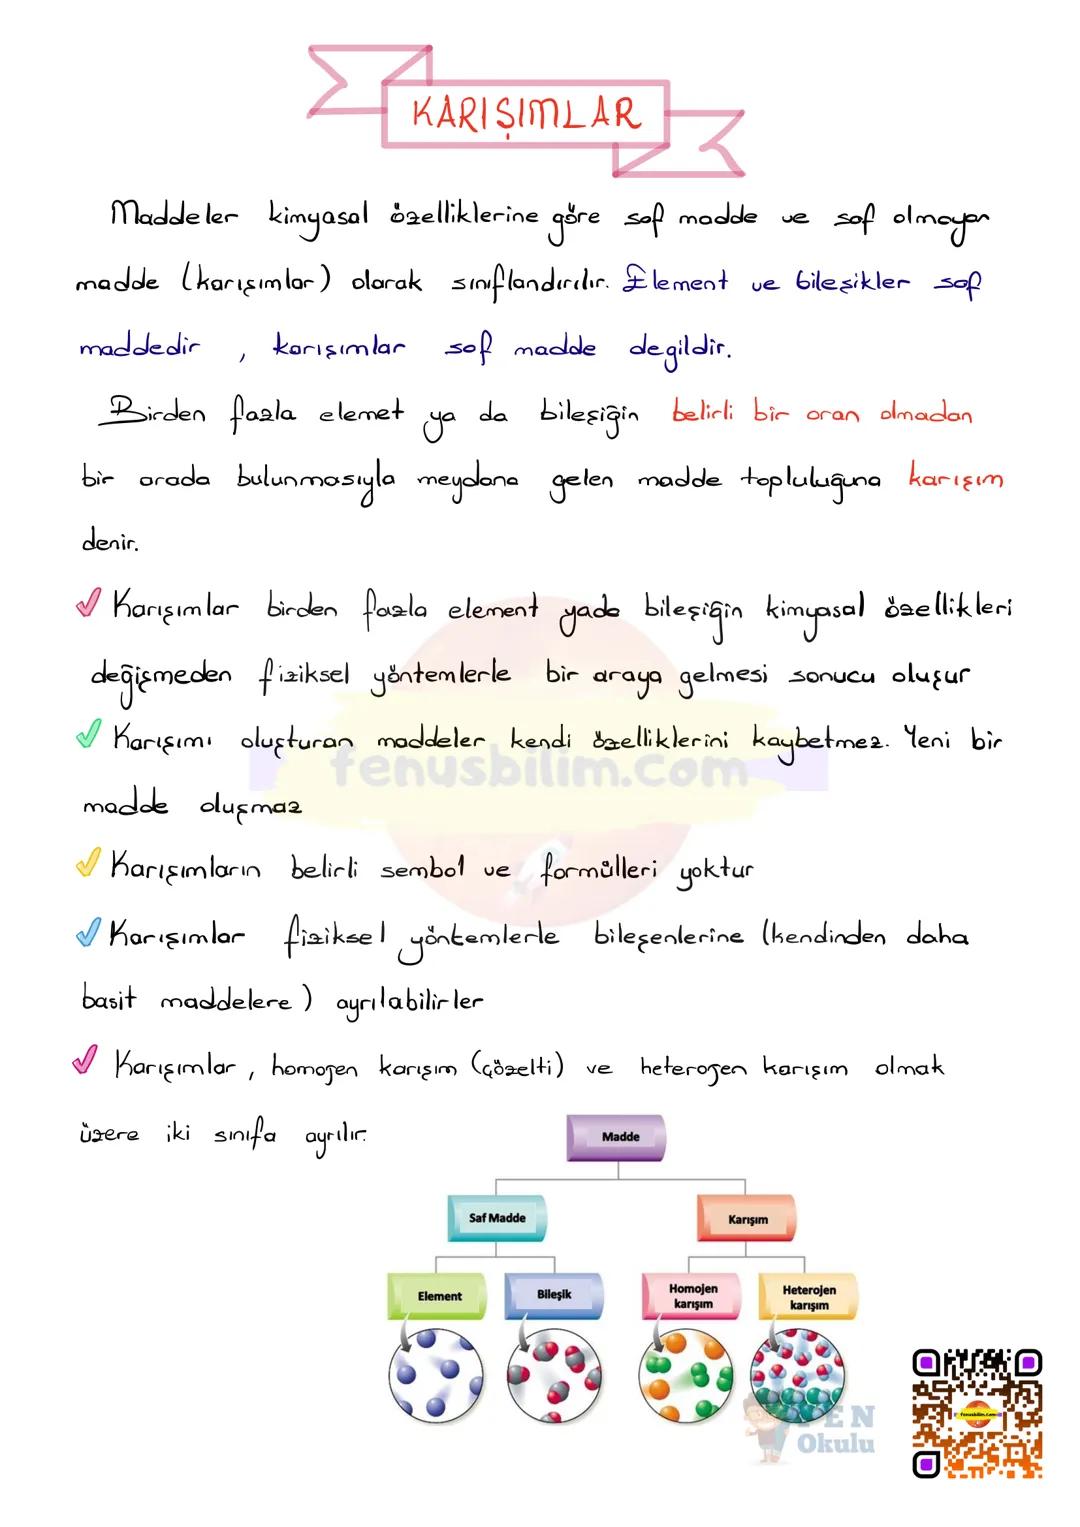 KARIŞIMLAR
Maddeler kimyasal özelliklerine göre saf madde ve saf olmayan
madde (karışımlar) olarak sınıflandırılır. Element ve bileşikler saf
maddedir , karışımlar saf madde degildir.
Birden fazla elemet ya da bileşiğin belirli bir oran olmadan
bir arada bulunmasıyla meydana gelen madde topluluğuna karışım
denir.
Karışımlar birden fazla element yada bileşiğin kimyasal özellikleri
değişmeden fiziksel yöntemlerle bir araya gelmesi sonucu oluşur
Karışımı oluşturan maddeler kendi özelliklerini kaybetmez. Yeni bir
fenusbilim.com
madde oluşmaz
Karışımların belirli sembol ve formülleri yoktur
Karışımlar fiziksel yöntemlerle bileşenlerine (kendinden daha
basit maddelere) ayrılabilirler
Karışımlar, homojen karışım (çözelti) ve heterojen karışım olmak
üzere iki sınıfa ayrılır.
Madde
Saf Madde Karışım
Element Bileşik Homojen karışım Heterojen karışım
FEN
Okulu
fenusbilim.com